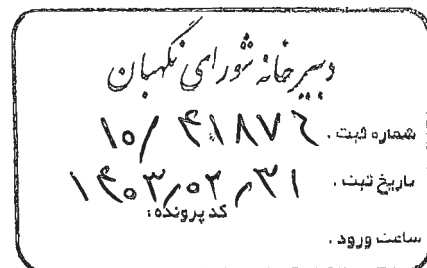 دبیرخانه شورای نگهبان
شماره ثبت . ۱۰/ ۴۱۸۷۶
تاریخ ثبت . ۱۴۰۳٫۰۲٫۳۱
کد پرونده:
ساعت ورود .